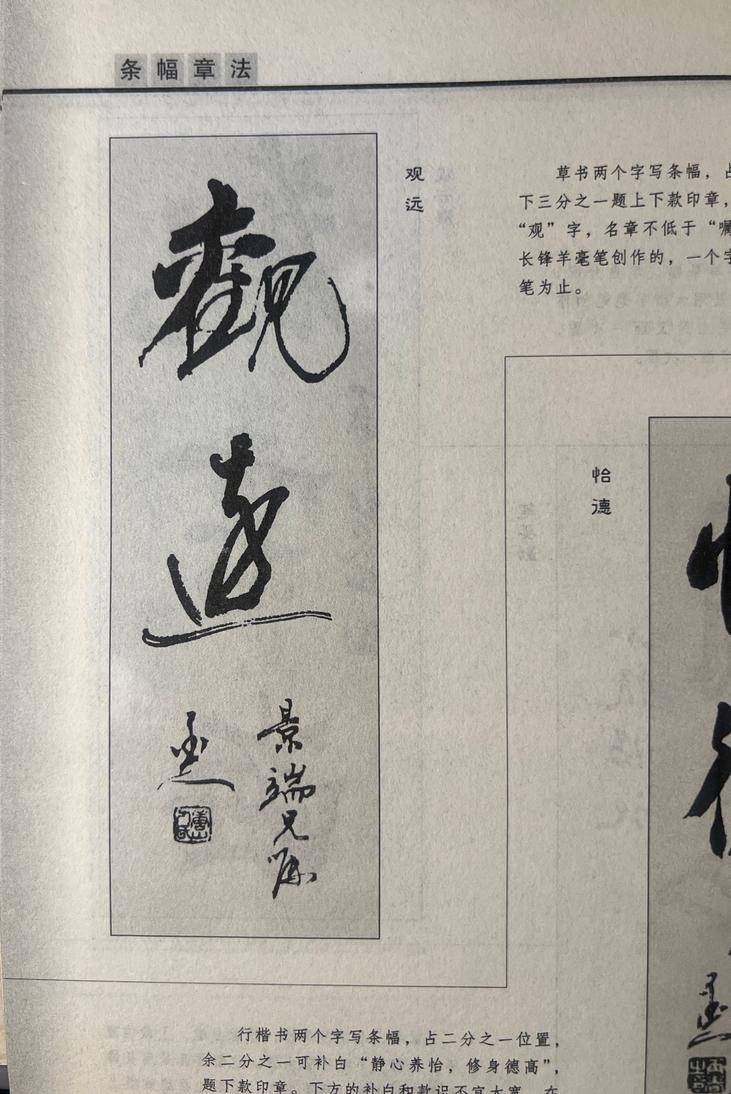 条幅章法
观远
觀
遠
景端兄属
草书两个字写条幅，
下三分之一题上下款印章，
“观”字，名章不低于“嘱
长锋羊毫笔创作的，一个字
笔为止。
怡德
行楷书两个字写条幅，占二分之一位置，
余二分之一可补白“静心养怡，修身德高”，
题下款印章。下方的补白和款识不宜太宽，在